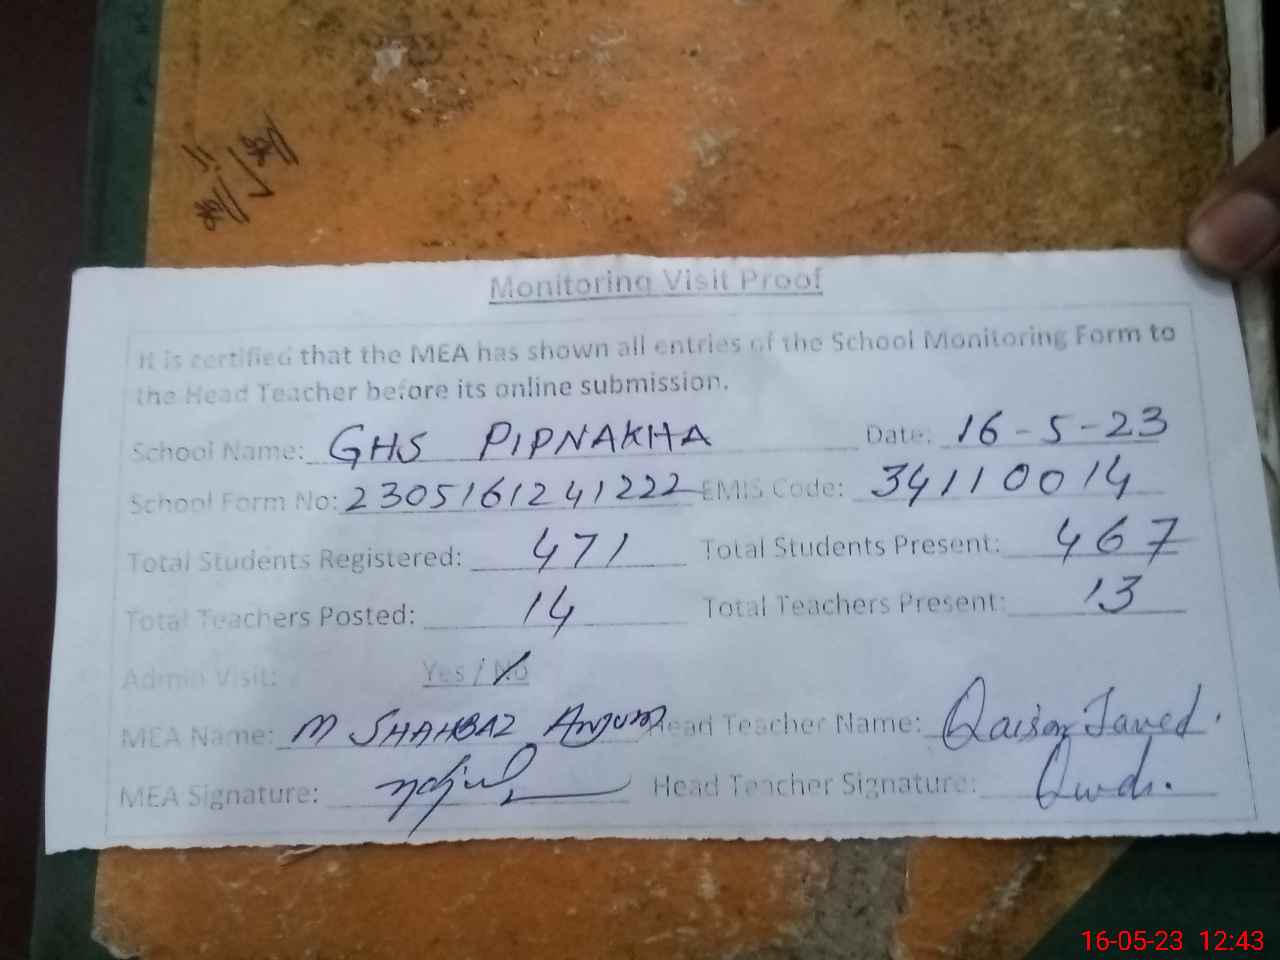 Monitoring Visit Proof
It is certified that the MEA has shown all entries of the School Monitoring Form to
the Head Teacher before its online submission.
School Name: GHS PIPNAKHA Date: 16-5-23
School Form No: 2305161241222 EMIS Code: 34110014
Total Students Registered: 471 Total Students Present: 467
Total Teachers Posted: 14 Total Teachers Present: 13
Admin Visit: Yes / No
MEA Name: M SHAHBAZ Anjum Head Teacher Name: Qaisar Javed.
MEA Signature: Head Teacher Signature:
16-05-23 12:43